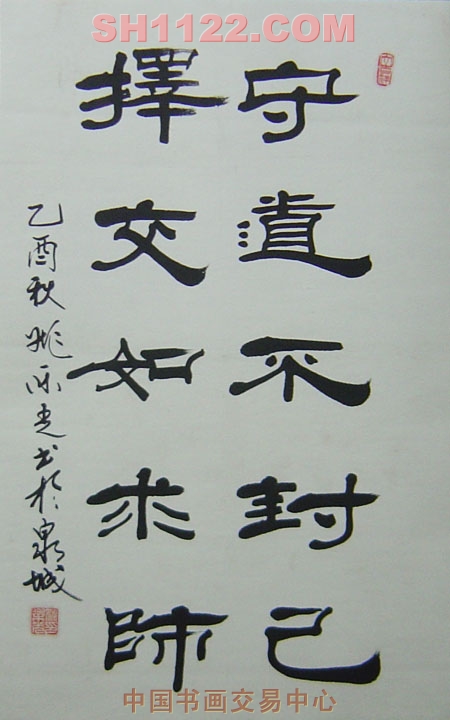 SH1122.COM
守道不封己
擇交如求師
乙酉秋姚 书於泉城
中国书画交易中心